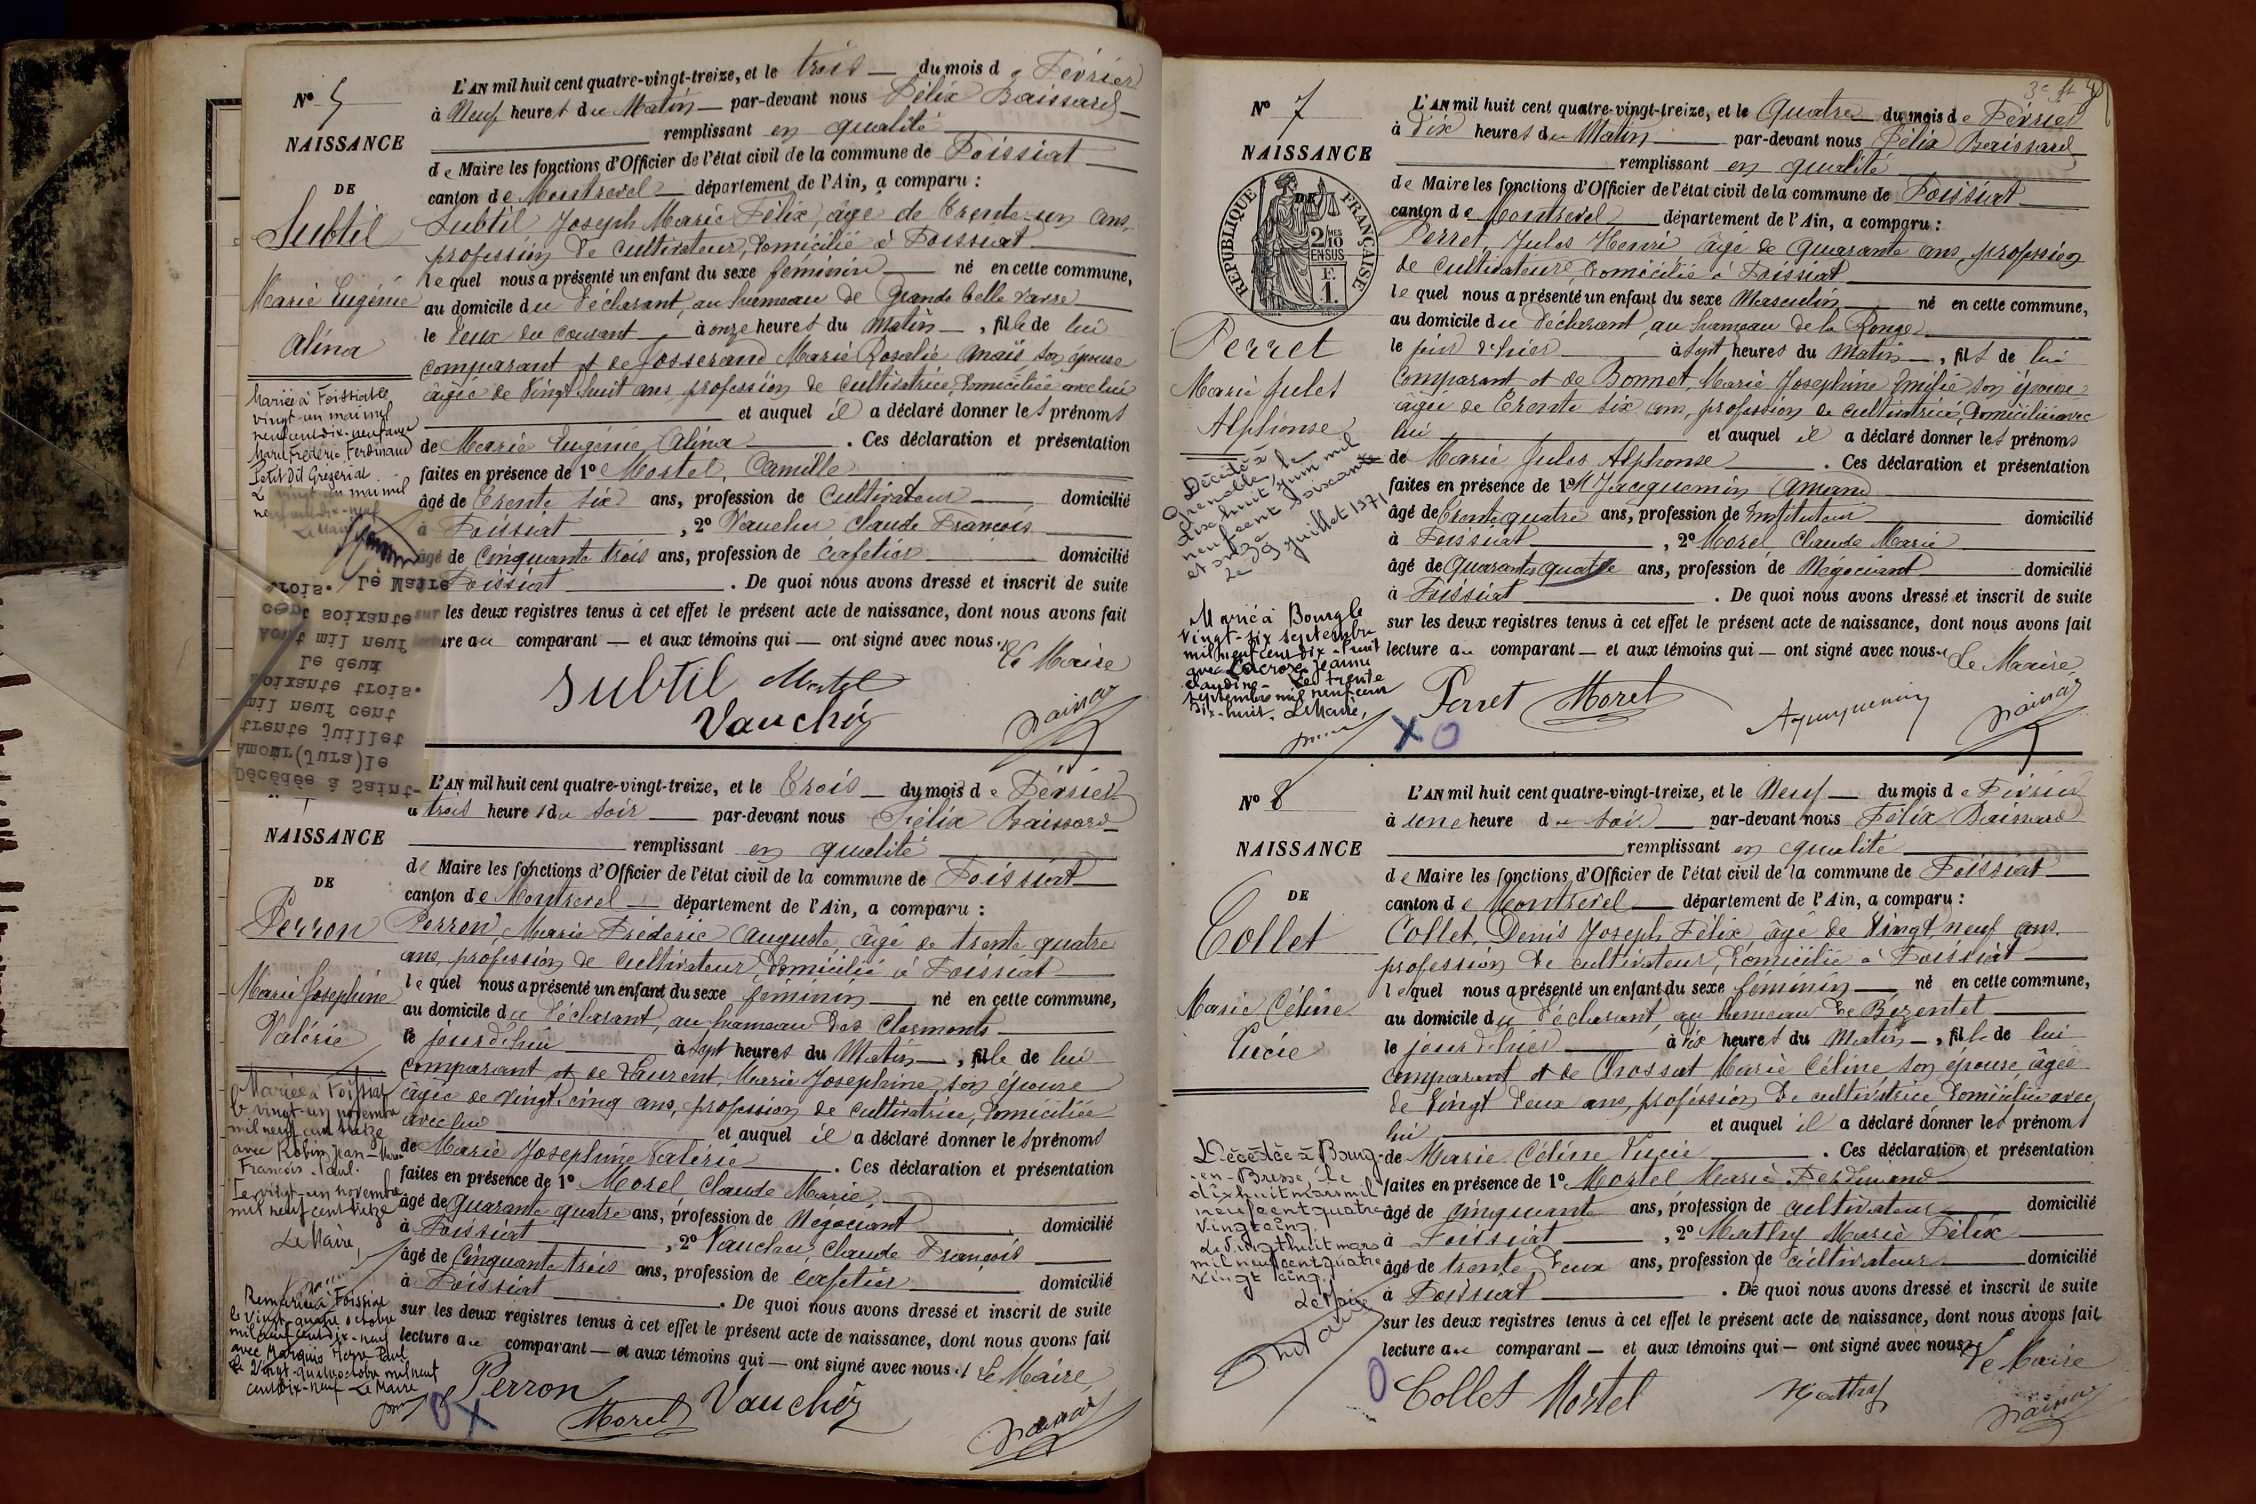 N° 5
NAISSANCE
DE
Subtil
Marie Eugénie
Alina
Mariée à Foissiat le
vingt-un mai mil
neuf cent dix-neuf avec
Marie Frédéric Ferdinand
Petit dit Grézeriat.
L vingt-un mai mil
neuf cent dix-neuf
Le Maire
L'AN mil huit cent quatre-vingt-treize, et le trois du mois de Février
à Neuf heures du Matin par-devant nous Félix Baissard
remplissant en qualité
de Maire les fonctions d'Officier de l'état civil de la commune de Foissiat
canton de Montrevel département de l'Ain, a comparu :
Subtil Joseph Marie Félix, âgé de trente-un ans,
profession de cultivateur, domicilié à Foissiat
lequel nous a présenté un enfant du sexe féminin né en cette commune,
au domicile du déclarant, au hameau de Grande belle
le deux du courant à onze heures du Matin, fille de lui
comparant et de Josserand Marie Rosalie Anaïs son épouse
âgée de vingt huit ans, profession de cultivatrice, domiciliée avec lui
et auquel il a déclaré donner les prénoms
de Marie Eugénie Alina. Ces déclaration et présentation
faites en présence de 1° Mortel, Camille
âgé de trente six ans, profession de Cultivateur domicilié
à Foissiat, 2° Vaucher Claude François
âgé de Cinquante trois ans, profession de cafetier domicilié
Foissiat. De quoi nous avons dressé et inscrit de suite
sur les deux registres tenus à cet effet le présent acte de naissance, dont nous avons fait
lecture au comparant et aux témoins qui ont signé avec nous. Le Maire
Subtil Mortel
Vaucher
Décédée à Saint-
Amour (Jura) le
trente juillet
mil neuf cent
soixante trois.
Le deux
Août mil neuf
cent soixante
trois. Le Maire
NAISSANCE
DE
Perron
Marie Joséphine
Valérie
Mariée à Foissiat
le vingt-un novembre
mil neuf cent treize
avec Robin Jean-Marie
François Paul.
Le vingt-un novembre
mil neuf cent treize
Le Maire,
Remariée à Foissiat
le vingt-quatre octobre
mil neuf cent dix-neuf
avec Marquis Pierre Paul
Le vingt-quatre octobre mil neuf
cent dix-neuf Le Maire
L'AN mil huit cent quatre-vingt-treize, et le trois du mois de Février
à trois heures du soir par-devant nous Félix Baissard
remplissant en qualité
de Maire les fonctions d'Officier de l'état civil de la commune de Foissiat
canton de Montrevel département de l'Ain, a comparu :
Perron, Marie Frédéric Auguste, âgé de trente quatre
ans, profession de Cultivateur, domicilié à Foissiat
lequel nous a présenté un enfant du sexe féminin né en cette commune,
au domicile du déclarant, au hameau des Clermonts
le jour d'hui à sept heures du Matin, fille de lui
comparant et de Laurent, Marie Joséphine son épouse
âgée de vingt-cinq ans, profession de cultivatrice, domiciliée
avec lui et auquel il a déclaré donner les prénoms
de Marie Joséphine Valérie. Ces déclaration et présentation
faites en présence de 1° Morel Claude Marie
âgé de quarante quatre ans, profession de Négociant domicilié
à Foissiat, 2° Vaucher Claude François
âgé de Cinquante trois ans, profession de cafetier domicilié
à Foissiat. De quoi nous avons dressé et inscrit de suite
sur les deux registres tenus à cet effet le présent acte de naissance, dont nous avons fait
lecture au comparant et aux témoins qui ont signé avec nous. Le Maire
Perron
Morel Vaucher
N° 7
NAISSANCE
DE
RÉPUBLIQUE FRANÇAISE
2/10 MES
EN SUS
1 F.
Perret
Marie Jules
Alphonse
Décédé à
Grenoble, le
dix huit juin mil
neuf cent soixante
et onze
Le 29 juillet 1971
Marié à Bourg le
vingt-six septembre
mil neuf cent dix-huit
avec Lacroze Jeanne
Claudine. Le trente
septembre mil neuf cent
dix-huit. Le Maire,
L'AN mil huit cent quatre-vingt-treize, et le Quatre du mois de Février
à dix heures du Matin par-devant nous Félix Baissard
remplissant en qualité
de Maire les fonctions d'Officier de l'état civil de la commune de Foissiat
canton de Montrevel département de l'Ain, a comparu :
Perret, Jules Henri âgé de quarante ans, profession
de cultivateur, domicilié à Foissiat
lequel nous a présenté un enfant du sexe Masculin né en cette commune,
au domicile du déclarant, au hameau de la Ronge
le jour d'hier à sept heures du Matin, fils de lui
comparant et de Bonnet, Marie Joséphine Emilie son épouse
âgée de trente six ans, profession de cultivatrice, domiciliée avec
lui et auquel il a déclaré donner les prénoms
de Marie Jules Alphonse. Ces déclaration et présentation
faites en présence de 1° Jacquemin Amand
âgé de trente quatre ans, profession de Instituteur domicilié
à Foissiat, 2° Morel Claude Marie
âgé de Quarante quatre ans, profession de Négociant domicilié
à Foissiat. De quoi nous avons dressé et inscrit de suite
sur les deux registres tenus à cet effet le présent acte de naissance, dont nous avons fait
lecture au comparant et aux témoins qui ont signé avec nous. Le Maire
Perret Morel
N° 8
NAISSANCE
DE
Collet
Marie Céline
Lucie
Décédée à Bourg-
-en-Bresse, le
dix huit mars mil
neuf cent quatre
vingt cinq.
Le vingt huit mars
mil neuf cent quatre
vingt cinq.
Le Maire
L'AN mil huit cent quatre-vingt-treize, et le Neuf du mois de Février
à une heure du soir par-devant nous Félix Baissard
remplissant en qualité
de Maire les fonctions d'Officier de l'état civil de la commune de Foissiat
canton de Montrevel département de l'Ain, a comparu :
Collet, Denis Joseph Félix, âgé de vingt neuf ans,
profession de cultivateur, domicilié à Foissiat
lequel nous a présenté un enfant du sexe féminin né en cette commune,
au domicile du déclarant, au hameau de Bézentet
le jour d'hier à dix heures du Matin, fille de lui
comparant et de Chossat Marie Céline son épouse, âgée
de vingt deux ans, profession de cultivatrice domiciliée avec
lui et auquel il a déclaré donner les prénoms
de Marie Céline Lucie. Ces déclaration et présentation
faites en présence de 1° Mortel Marie Ferdinand
âgé de cinquante ans, profession de cultivateur domicilié
à Foissiat, 2° Mathy Marie Félix
âgé de trente deux ans, profession de cultivateur domicilié
à Foissiat. De quoi nous avons dressé et inscrit de suite
sur les deux registres tenus à cet effet le présent acte de naissance, dont nous avons fait
lecture au comparant et aux témoins qui ont signé avec nous. Le Maire
Collet Mortel Mathy